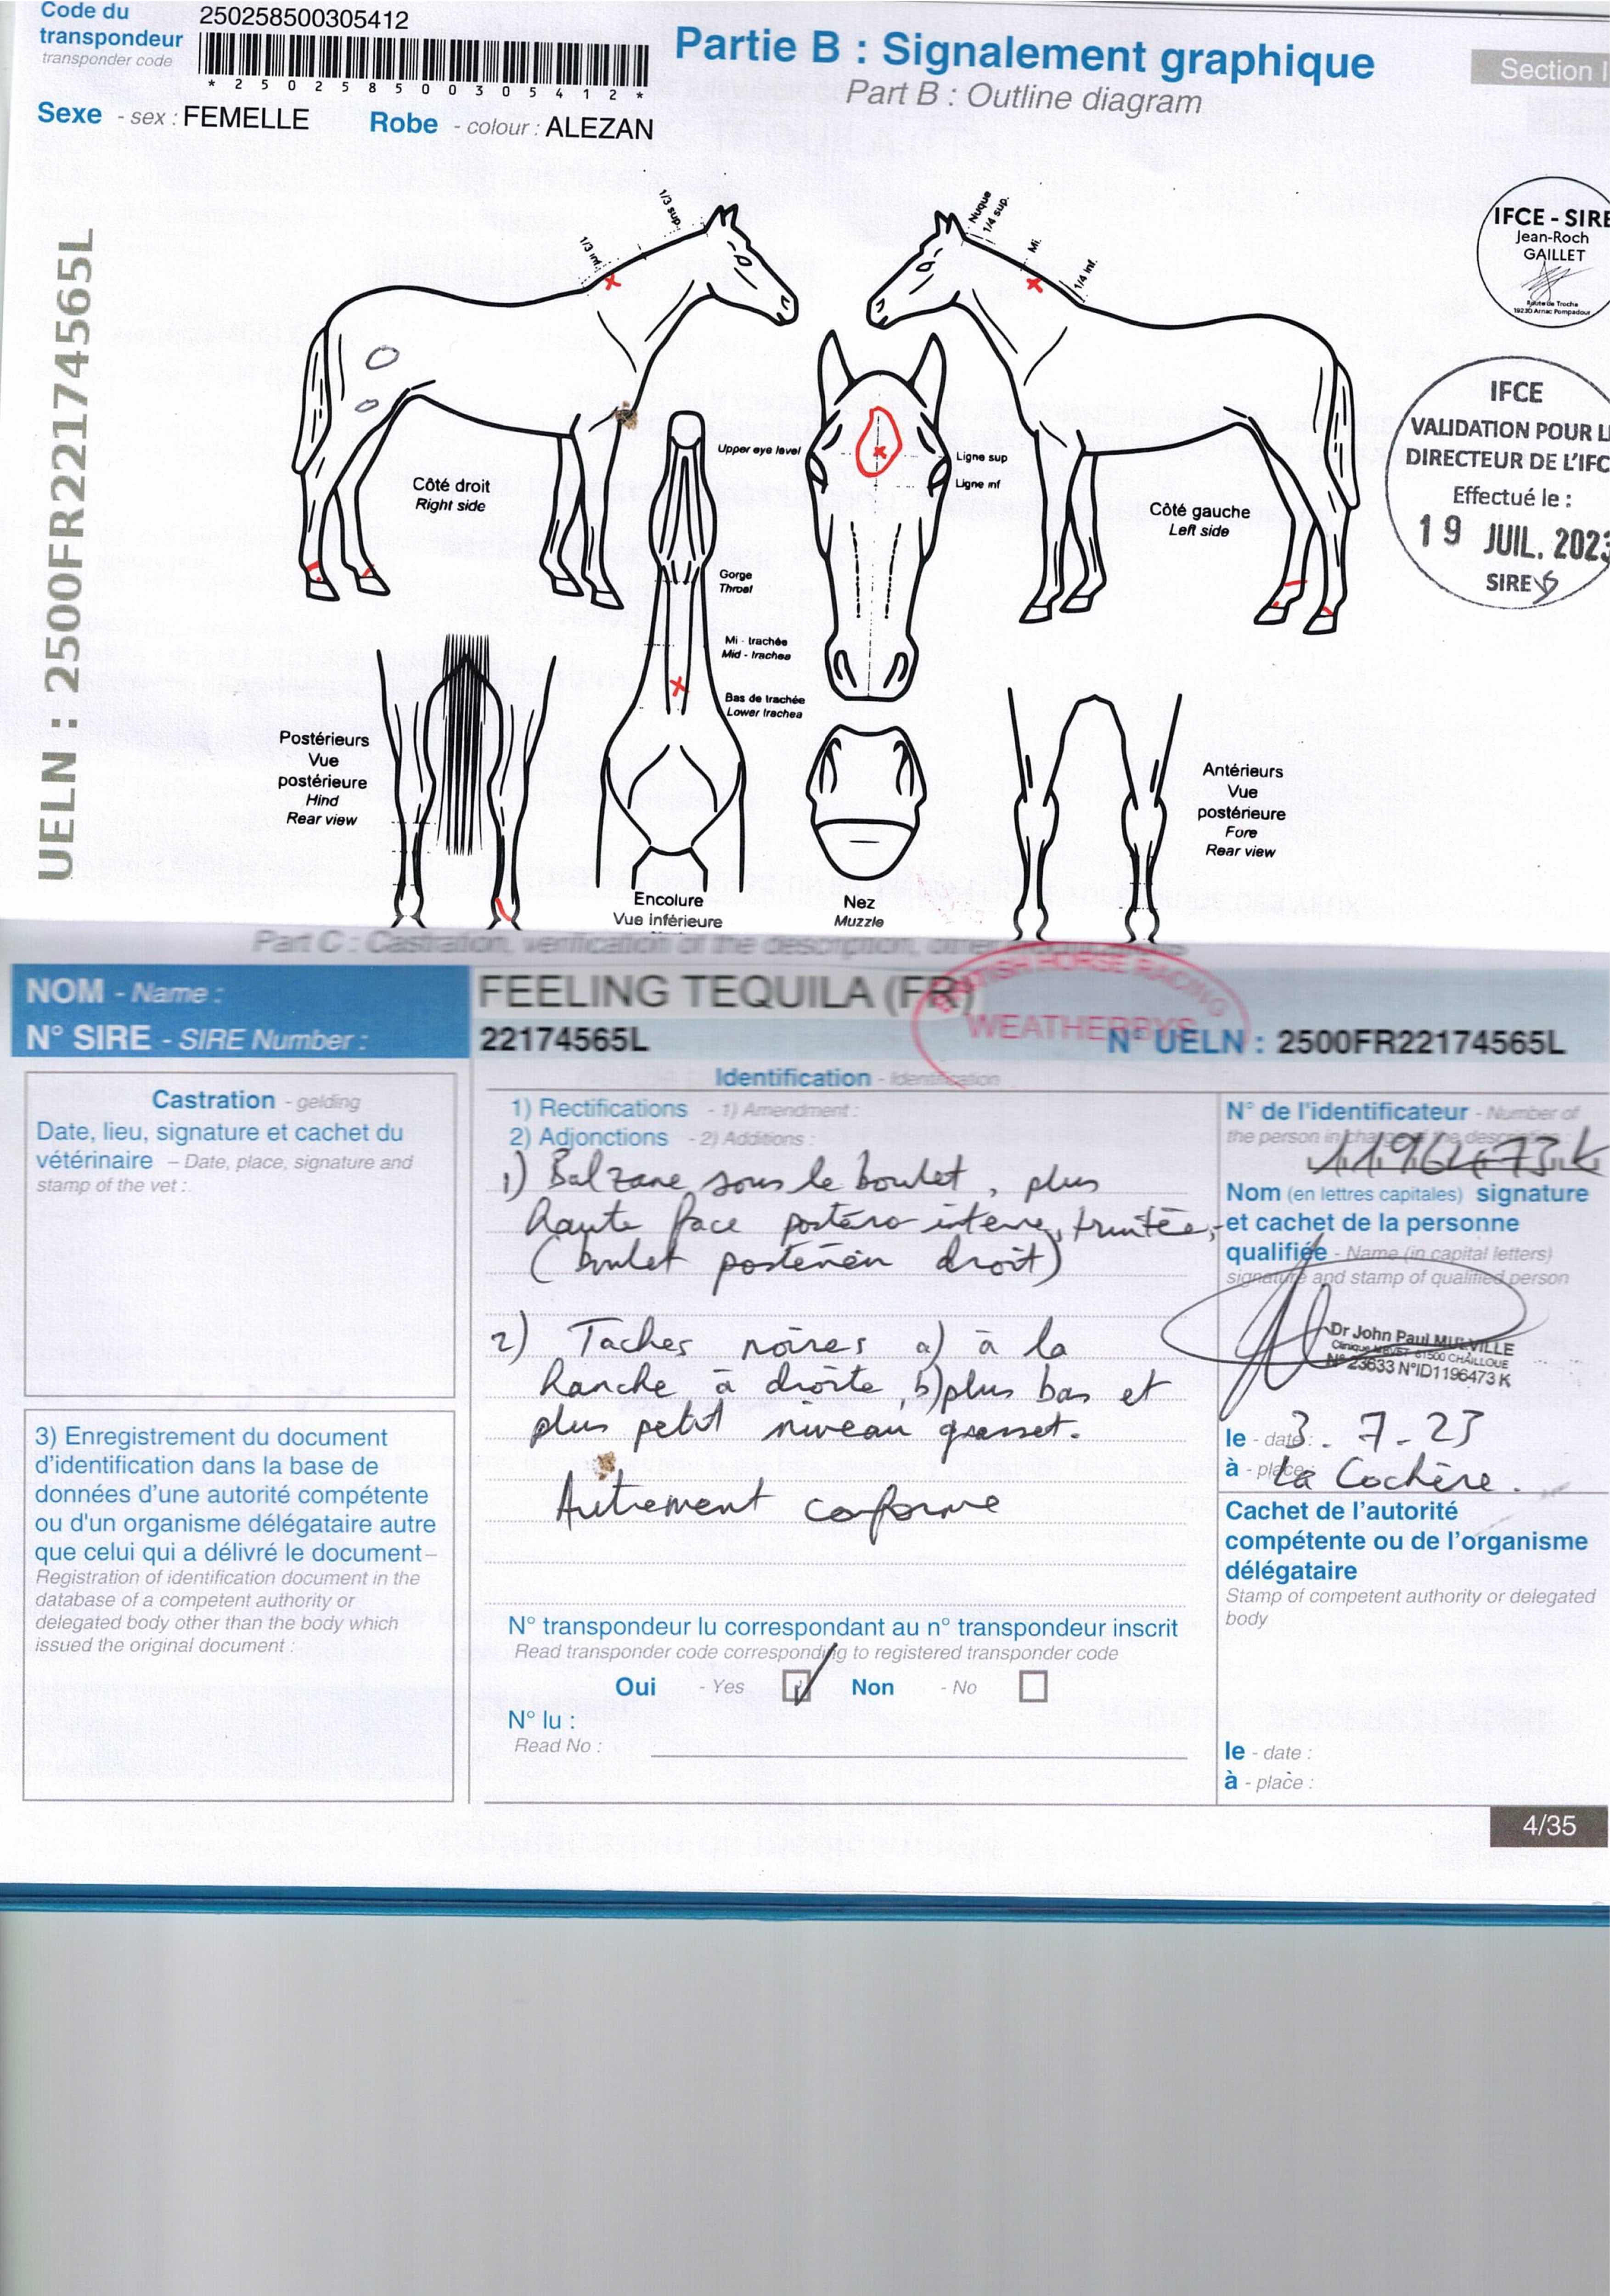 Code du
transpondeur
transponder code
250258500305412
* 2 5 0 2 5 8 5 0 0 3 0 5 4 1 2 *
Partie B : Signalement graphique
Part B : Outline diagram
Section I
Sexe - sex : FEMELLE Robe - colour : ALEZAN
UELN : 2500FR22174565L
1/3 inf.
1/3 sup.
Nuque
1/4 sup.
Mi.
1/4 inf.
IFCE - SIRE
Jean-Roch
GAILLET
Route de Troche
19230 Arnac Pompadour
IFCE
VALIDATION POUR L
DIRECTEUR DE L'IFC
Effectué le :
19 JUIL. 2023
SIRE
Côté droit
Right side
Upper eye level
Ligne sup
Ligne inf
Côté gauche
Left side
Gorge
Throat
Mi - trachée
Mid - trachea
Bas de trachée
Lower trachea
Postérieurs
Vue
postérieure
Hind
Rear view
Encolure
Vue inférieure
Nez
Muzzle
Antérieurs
Vue
postérieure
Fore
Rear view
Part C : Castration, verification of the description,
NOM - Name :
FEELING TEQUILA (FR)
BRITISH HORSE RACING
WEATHERBYS
N° SIRE - SIRE Number :
22174565L
N° UELN : 2500FR22174565L
Identification - Identification
Castration - gelding
Date, lieu, signature et cachet du
vétérinaire – Date, place, signature and
stamp of the vet :
1) Rectifications - 1) Amendment :
2) Adjonctions - 2) Additions :
1) Balzane sous le boulet, plus
haute face postéro interne, truitée,
(boulet postérieur droit)
2) Taches noires a) à la
hanche à droite, b) plus bas et
plus petit niveau grasset.
Autrement conforme
N° de l'identificateur - Number of
the person in charge of the description :
1196473K
Nom (en lettres capitales) signature
et cachet de la personne
qualifiée - Name (in capital letters)
signature and stamp of qualified person
Dr John Paul MULVILLE
61500 CHAILLOUE
N° 23633 N°ID1196473 K
le - date : 3.7-23
à - place : La Cochère.
Cachet de l'autorité
compétente ou de l'organisme
délégataire
Stamp of competent authority or delegated
body
le - date :
à - place :
3) Enregistrement du document
d'identification dans la base de
données d'une autorité compétente
ou d'un organisme délégataire autre
que celui qui a délivré le document–
Registration of identification document in the
database of a competent authority or
delegated body other than the body which
issued the original document :
N° transpondeur lu correspondant au n° transpondeur inscrit
Read transponder code corresponding to registered transponder code
Oui - Yes Non - No
N° lu :
Read No :
4/35